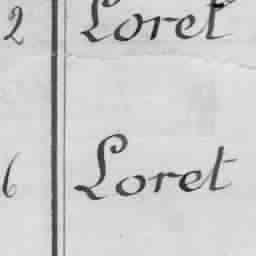 2 Loret
6 Loret